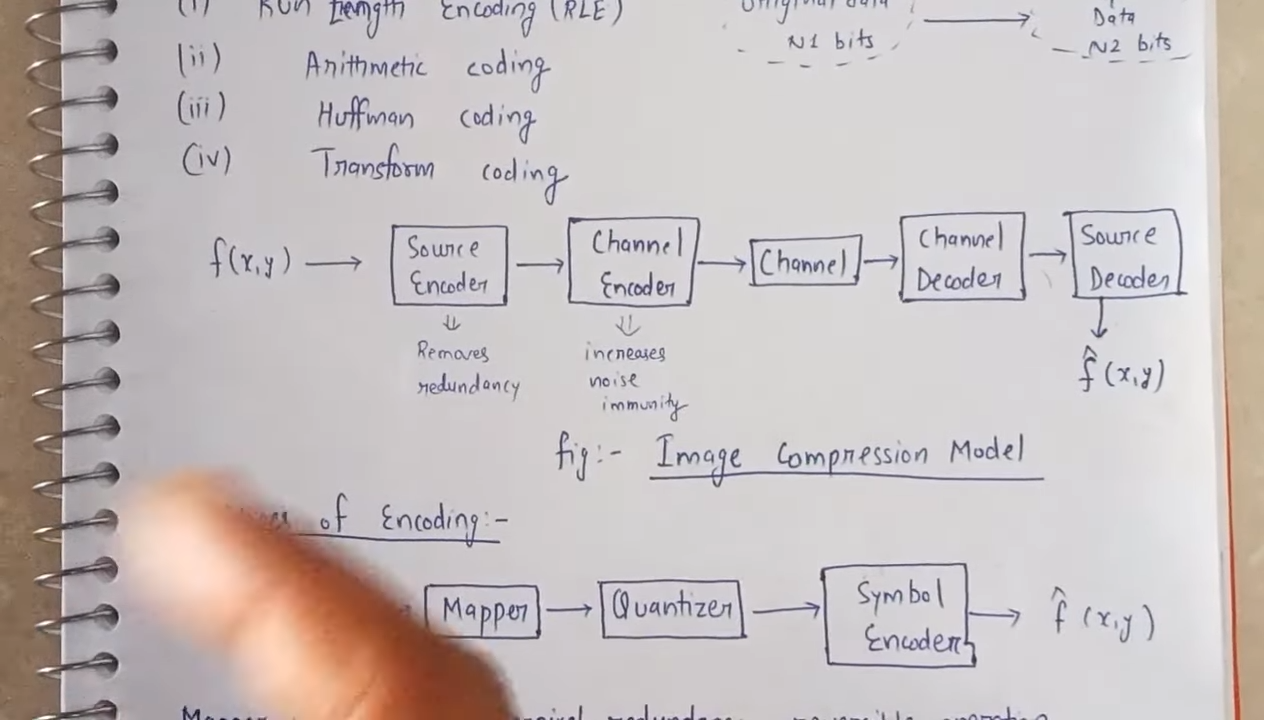 (i) Run Length Encoding (RLE)
Original data
N1 bits
Data
N2 bits
(ii) Arithmetic coding
(iii) Huffman coding
(iv) Transform coding
f(x,y) → Source Encoder → Channel Encoder → Channel → Channel Decoder → Source Decoder
⇓ Removes redundancy
⇓ increases noise immunity
↓ f̂(x,y)
fig:- Image Compression Model
of Encoding:-
Mapper → Quantizer → Symbol Encoder → f̂(x,y)